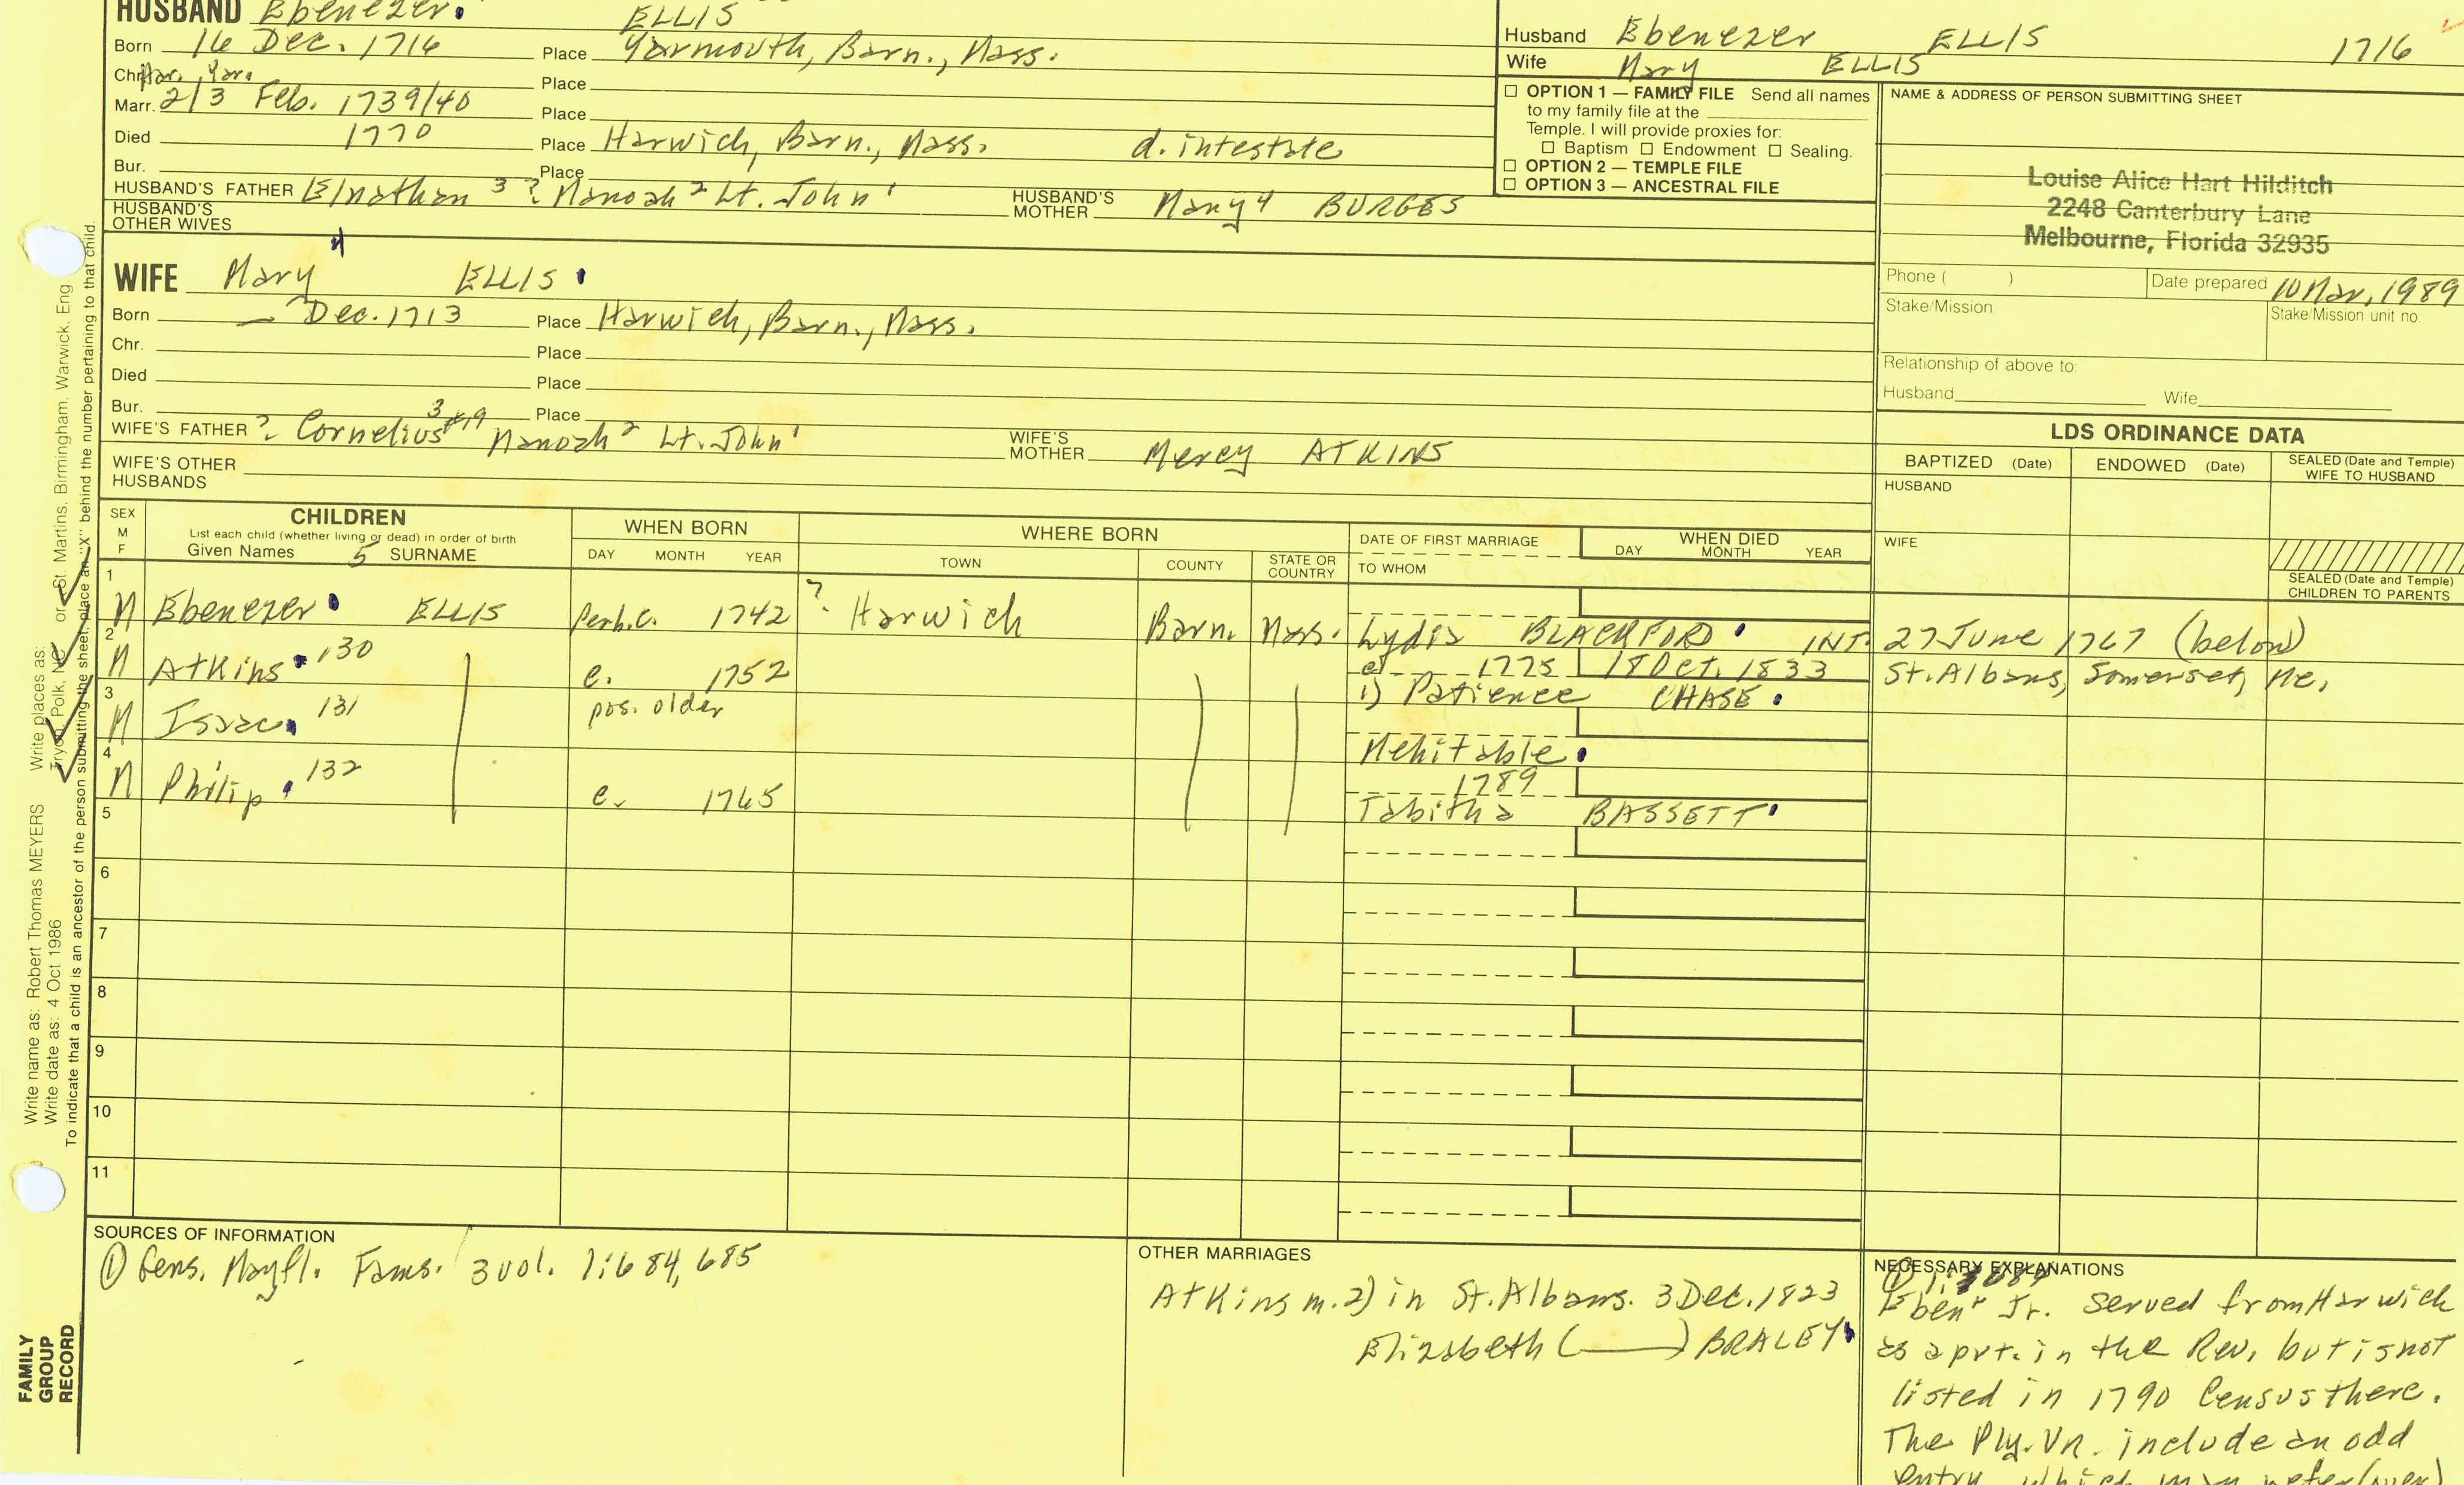 HUSBAND Ebenezer ELLIS
Born 16 Dec. 1716 Place Yarmouth, Barn., Mass.
Chr. Har., Yar. Place
Marr. 2/3 Feb. 1739/40 Place
Died 1770 Place Harwich, Barn., Mass. d. intestate
Bur. Place
HUSBAND'S FATHER Elnathan 3 ? Manoah 2 Lt. John 1 HUSBAND'S MOTHER Mary 4 BURGES
HUSBAND'S OTHER WIVES
Husband Ebenezer ELLIS 1716
Wife Mary ELLIS
☐ OPTION 1 — FAMILY FILE Send all names
to my family file at the
Temple. I will provide proxies for:
☐ Baptism ☐ Endowment ☐ Sealing.
☐ OPTION 2 — TEMPLE FILE
☐ OPTION 3 — ANCESTRAL FILE
NAME & ADDRESS OF PERSON SUBMITTING SHEET
Louise Alice Hart Hilditch
2248 Canterbury Lane
Melbourne, Florida 32935
Phone ( ) Date prepared 10 Mar, 1989
Stake/Mission Stake/Mission unit no.
Relationship of above to:
Husband Wife
WIFE Mary 4 ELLIS
Born — Dec. 1713 Place Harwich, Barn., Mass.
Chr. Place
Died Place
Bur. Place
WIFE'S FATHER ? Cornelius 3 #19 Manoah 2 Lt. John 1 WIFE'S MOTHER Mercy ATKINS
WIFE'S OTHER HUSBANDS
LDS ORDINANCE DATA
BAPTIZED (Date) ENDOWED (Date) SEALED (Date and Temple) WIFE TO HUSBAND
HUSBAND
WIFE
SEALED (Date and Temple) CHILDREN TO PARENTS
SEX M F
CHILDREN
List each child (whether living or dead) in order of birth
Given Names 5 SURNAME
WHEN BORN
DAY MONTH YEAR
WHERE BORN
TOWN COUNTY STATE OR COUNTRY
DATE OF FIRST MARRIAGE
TO WHOM
WHEN DIED
DAY MONTH YEAR
1 M Ebenezer ELLIS Perh. c. 1742 ? Harwich Barn. Mass. Lydia BLACKFORD INT. 27 June 1767 (below)
2 M Atkins 130 c. 1752 c 1775 18 Oct. 1833 St. Albans, Somerset, Me.
1) Patience CHASE
3 M Isaac 131 pos. older Mehitable
4 M Philip 132 c. 1765 1789
Tabitha BASSETT
5
6
7
8
9
10
11
SOURCES OF INFORMATION
① Gens. Mayfl. Fams. 3 vol. 1:684, 685
OTHER MARRIAGES
Atkins m. 2) in St. Albans. 3 Dec. 1823
Elizabeth (——) BRALEY
NECESSARY EXPLANATIONS
① 1:684
Ebenr Jr. served from Harwich
as a pvt. in the Rev, but is not
listed in 1790 Census there.
The Ply. VR. include an odd
entry which may refer (over)
Write name as: Robert Thomas MEYERS Write places as: Tryon, Polk, NC or St. Martins, Birmingham, Warwick, Eng
Write date as: 4 Oct 1986
To indicate that a child is an ancestor of the person submitting the sheet, place an "X" behind the number pertaining to that child.
FAMILY
GROUP
RECORD